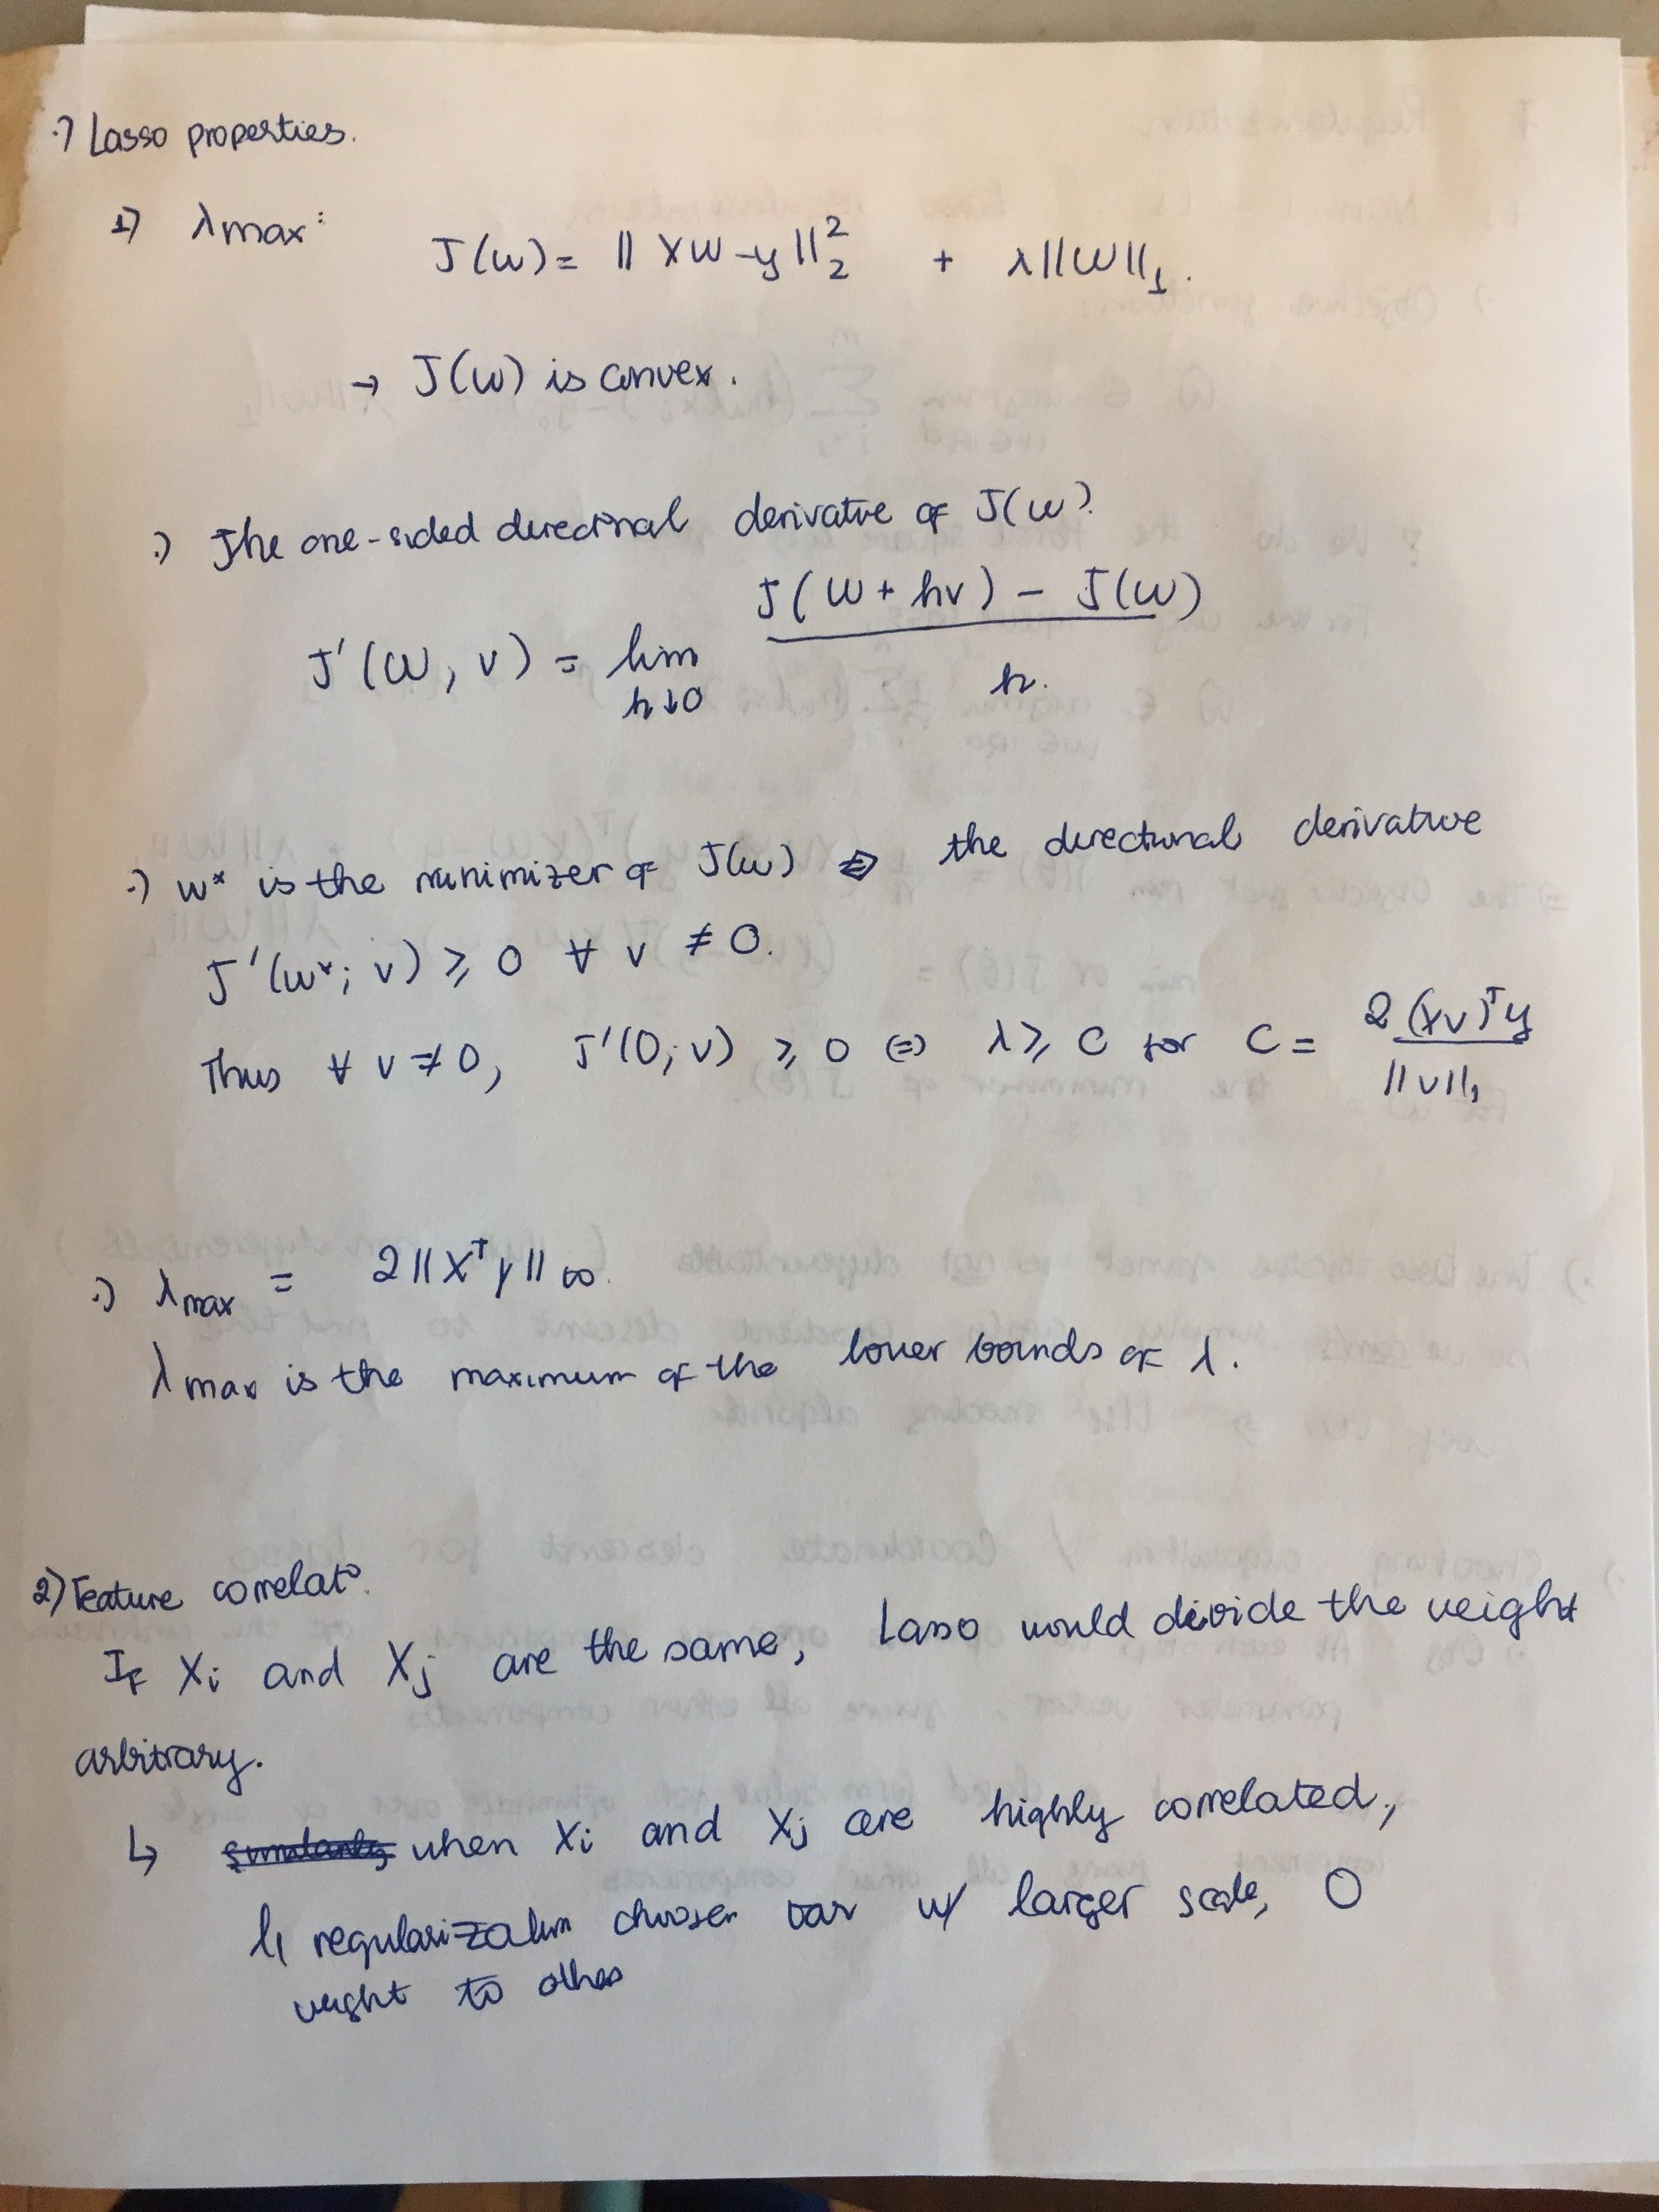 ·) Lasso properties.
1) λmax: J(w) = || Xw - y ||₂² + λ||w||₁.
→ J(w) is convex.
·) The one-sided directional derivative of J(w):
J'(w, v) = lim_{h↓0} (J(w + hv) - J(w)) / h.
·) w* is the minimizer of J(w) ⇔ the directional derivative
J'(w*; v) ≥ 0 ∀ v ≠ 0.
Thus ∀ v ≠ 0, J'(0; v) ≥ 0 ⇔ λ ≥ C for C = 2(Xv)ᵀy / ||v||₁
·) λmax = 2||Xᵀy||∞.
λmax is the maximum of the lower bounds of λ.
2) Feature correlatᵒ.
If Xi and Xj are the same, Lasso would divide the weight
arbitrary.
↳ when Xi and Xj are highly correlated,
l₁ regularization chooses var w/ larger scale, 0
weight to other